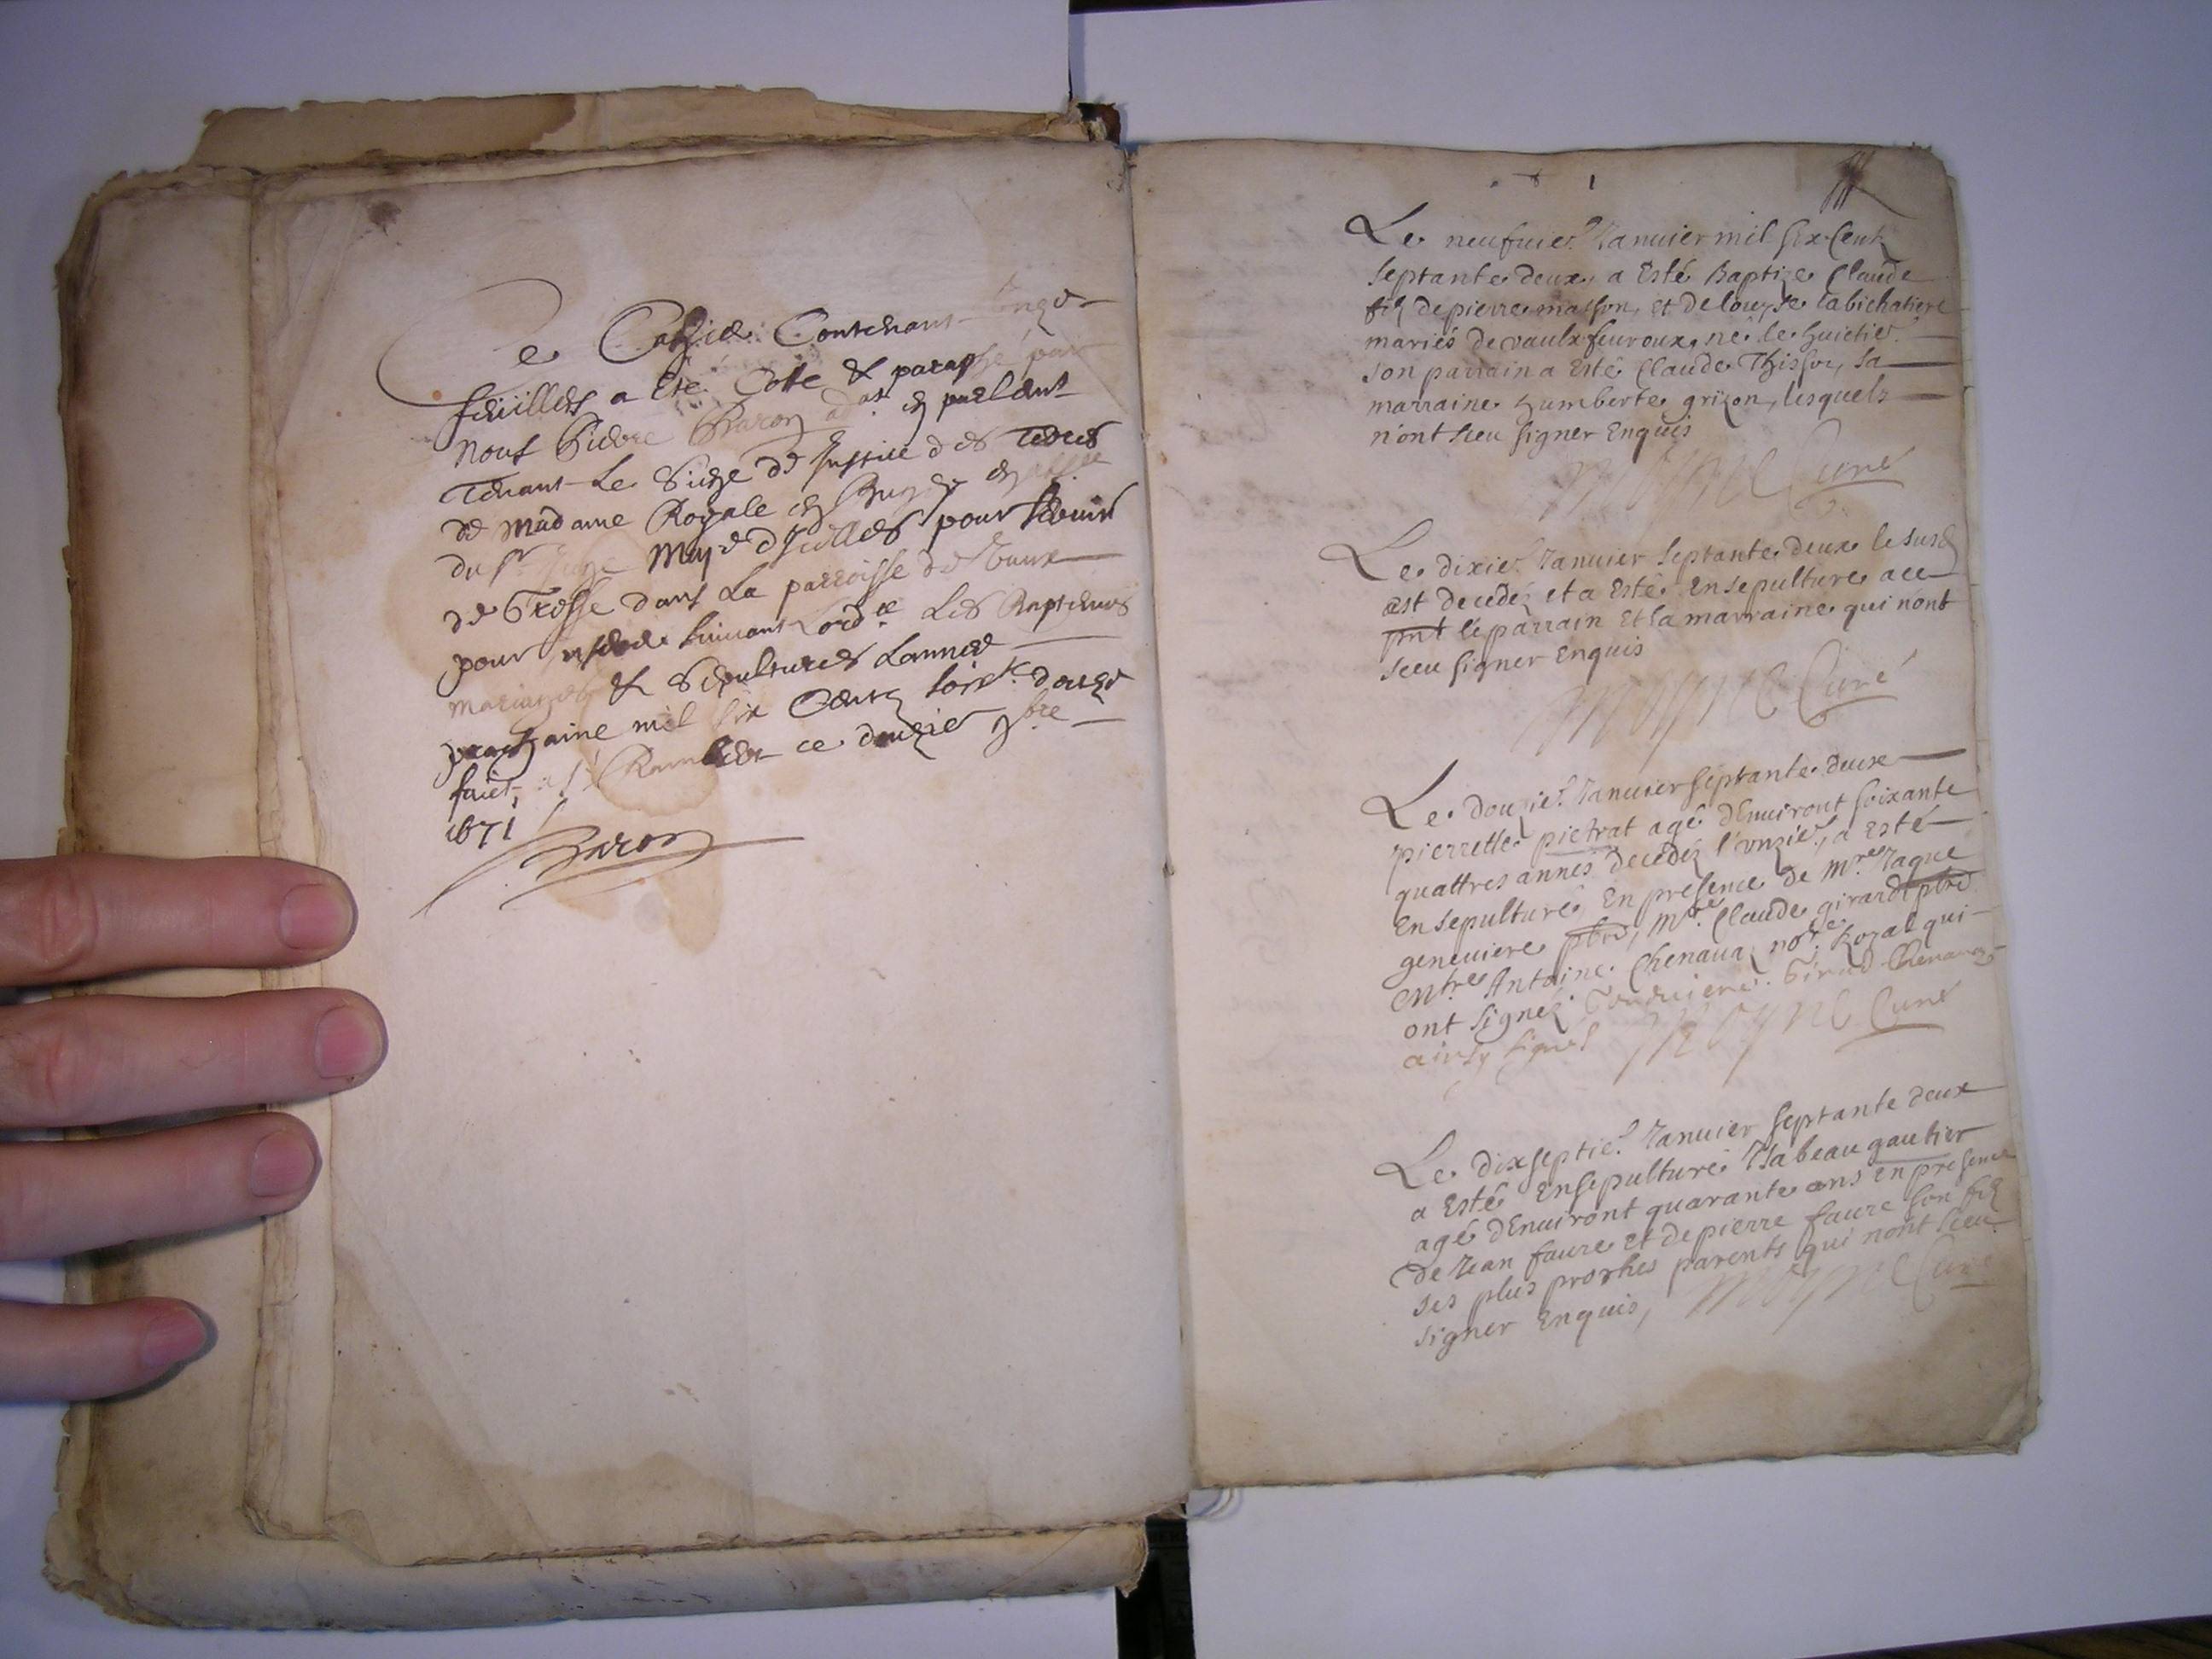 Ce Cahier Contenant
feüilles a Eté Cotte & paraphé par
Nous Pierre Baron adat en parlent
Tenant Le Siege de Justice des Terres
de Madame Royale en Bugey en
du sr Juge Maje d'Icelles pour servir
de Greffe dans La parroisse de Vaux
pour suivant Lordce Les Baptemes
Mariages & Sepultures Lannee
prochaine mil six Cents soixte douze
faict a St Rambert ce douzie 9bre
1671
Baron
1
Le neufuie Ianuier mil six Cent
septante deux, a Esté Baptize Claude
filz de pierre masson, et de louyse labichatiere
mariés de vaulx feuroux, né le huictie
son parrain a Esté Claude Thissor, sa
marraine humberte grizon, lesquels
n'ont sceu signer Enquis
Moyne Curé
Le dixie Ianuier septante deux le susd
est decedéz et a Esté Ensepulture auec
pnt le parrain Et la marraine qui nont
sceu signer Enquis
Moyne Curé
Le douzie Ianuier septante deux
pierrette pietrat agé dEnuiront soixante
quattres annés decedéz l'unzie, a Esté
Ensepulturé, En presence de Mre Iaque
geneuiere pbre, Mre Claude girard pbre
Et Mtre Antoine Chenaua nore Royal qui
ont signéz Geneuiere. Girard Chenaua
ainsy signes Moyne Curé
Le dixseptie Ianuier septante deux
a Esté Ensepulturé Isabeau gautier
agé dEnuiront quarante ans en presence
de Iean faure et de pierre faure son filz
ses plus proches parents qui nont sceu
signer Enquis, Moyne Curé